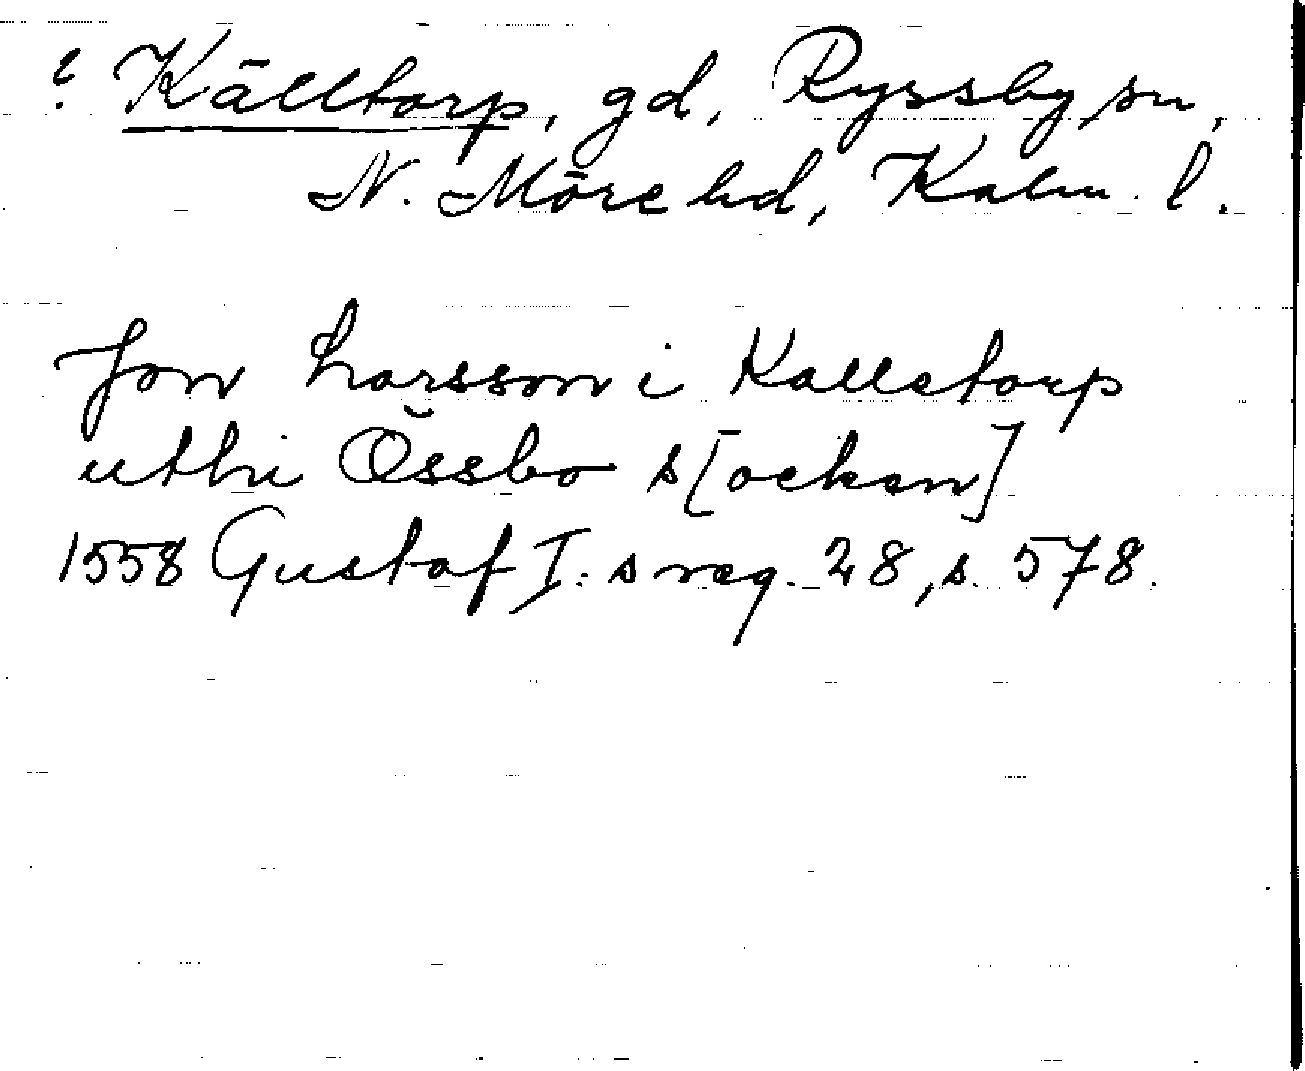 ? Källtorp, gd, Ryssby sn,
N. Möre hd, Kalm. l.
Jon Larsson i Kalletorp
uthi Össbo s[ocken]
1558 Gustaf I:s reg. 28, s. 578.